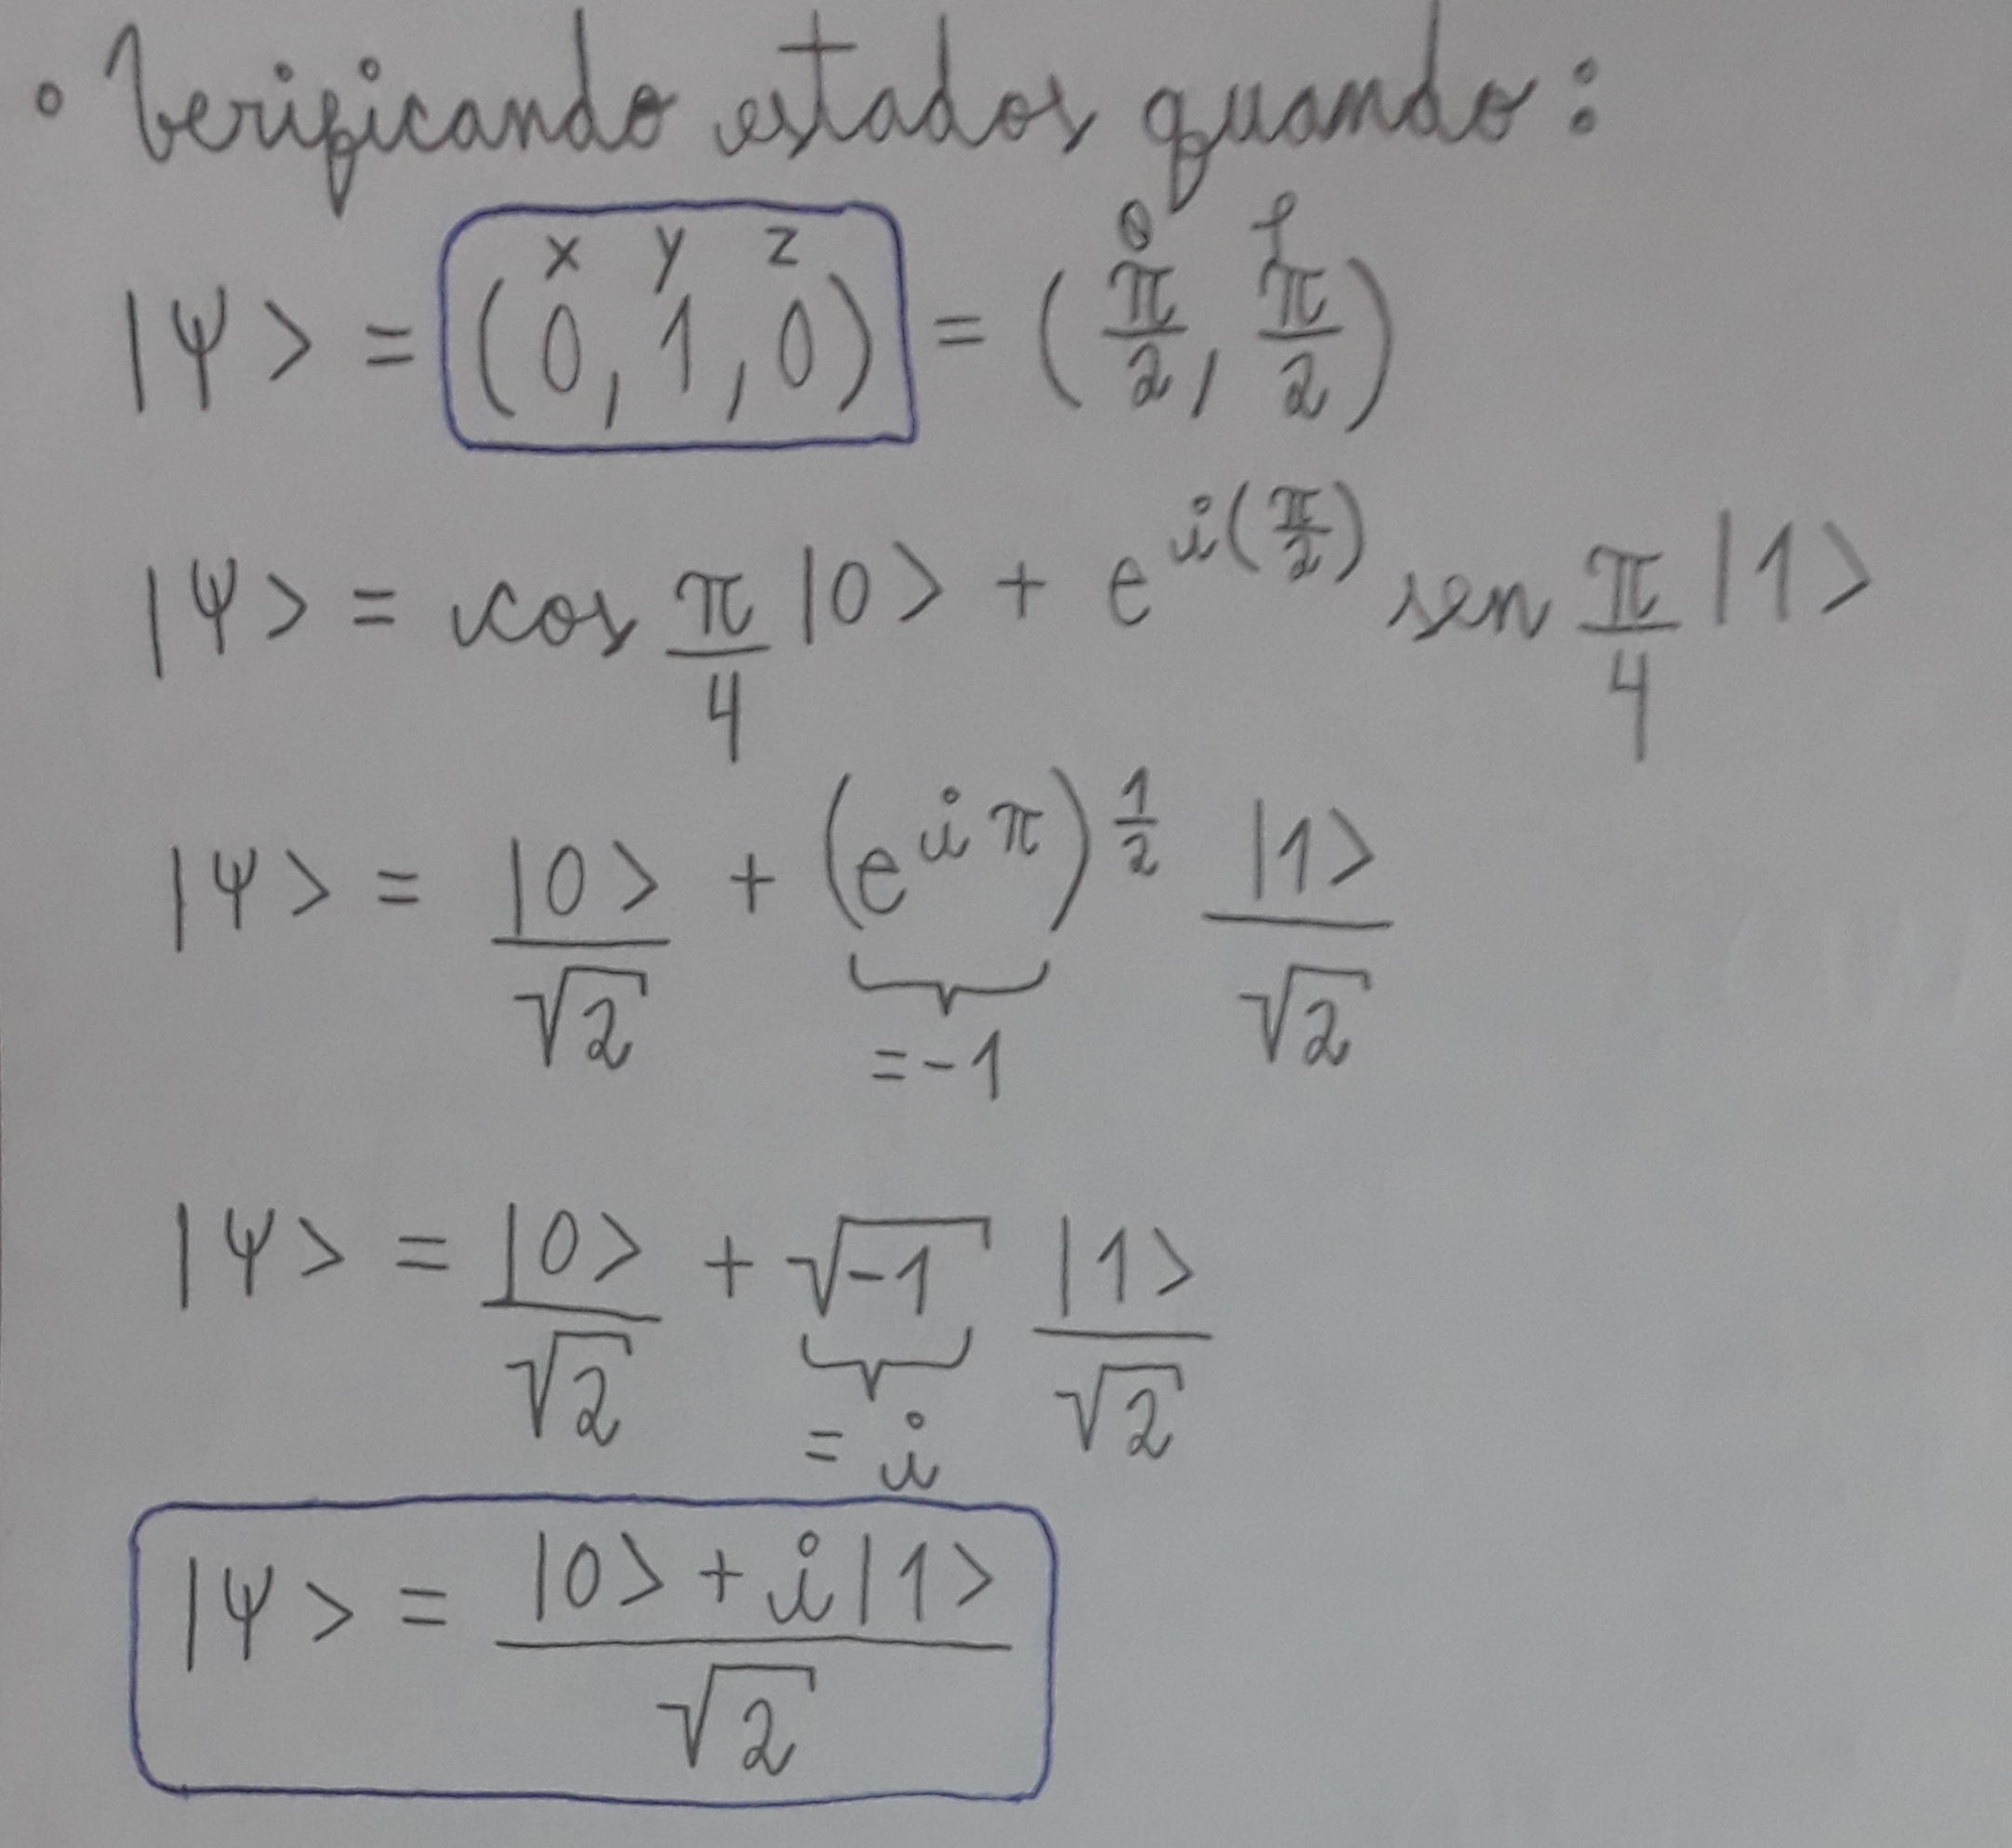 • Verificando estados quando:
x y z θ φ
|Ψ> = (0, 1, 0) = (π/2, π/2)
|Ψ> = cos π/4 |0> + e^{i(π/2)} sen π/4 |1>
|Ψ> = |0>/√2 + (e^{iπ})^{1/2} |1>/√2
= -1
|Ψ> = |0>/√2 + √-1 |1>/√2
= i
|Ψ> = (|0> + i|1>)/√2